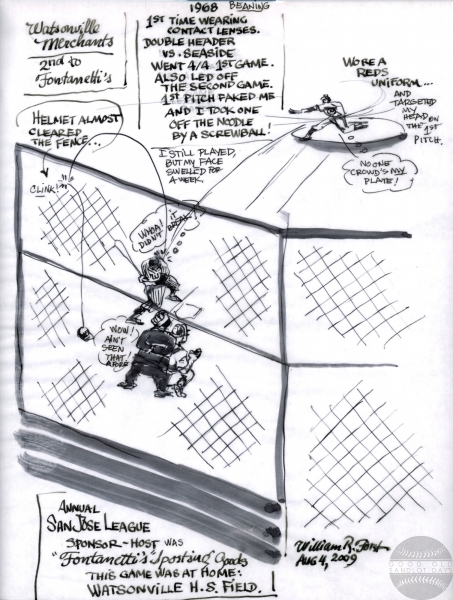 1968 BEANING
Watsonville
Merchants
2nd to
Fontanetti's
1ST TIME WEARING
CONTACT LENSES.
DOUBLE HEADER
VS. SEASIDE
WENT 4/4 1ST GAME.
ALSO LED OFF
THE SECOND GAME.
1ST PITCH FAKED ME
AND I TOOK ONE
OFF THE NOODLE
BY A SCREWBALL!
WORE A
REDS
UNIFORM...
AND
TARGETED
MY
HEAD ON
THE 1ST
PITCH.
HELMET ALMOST
CLEARED
THE FENCE...
I STILL PLAYED,
BUT MY FACE
SWELLED FOR
A WEEK.
NO ONE
CROWD'S MY
PLATE!
CLINK!
WHOA! IT
DIDN'T BREAK
WOW!
AIN'T
SEEN
THAT
AFORE
ANNUAL
SAN JOSE LEAGUE
SPONSOR-HOST WAS
"Fontanetti's" Sporting Goods
THIS GAME WAS AT HOME:
WATSONVILLE H.S. FIELD.
William R. Forst
AUG 4, 2009
GOOD OLD
SANDLOT DAYS